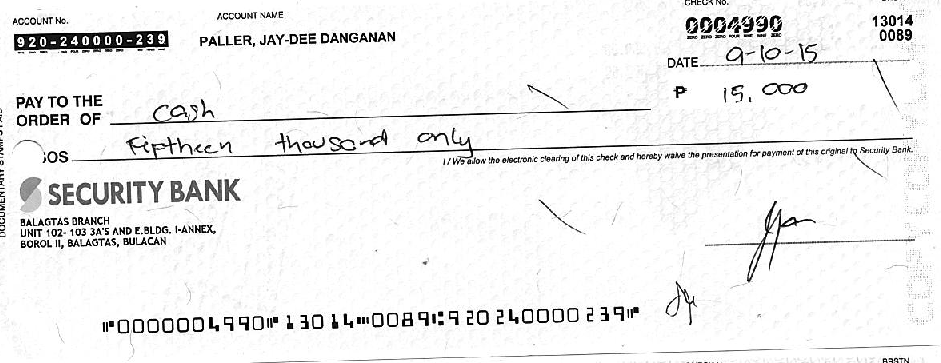 ACCOUNT No.
ACCOUNT NAME
CHECK No.
920-240000-239
PALLER, JAY-DEE DANGANAN
0004990
13014
0089
DATE 9-10-15
PAY TO THE
ORDER OF cash
₱ 15,000
Fiptheen thousand only
I / We allow the electronic clearing of this check and hereby waive the presentation for payment of this original to Security Bank.
SECURITY BANK
BALAGTAS BRANCH
UNIT 102- 103 3A'S AND E.BLDG. I-ANNEX,
BOROL II, BALAGTAS, BULACAN
⑈0000004990⑈ 13014⑉0089⑆920240000239⑈
BRSTN